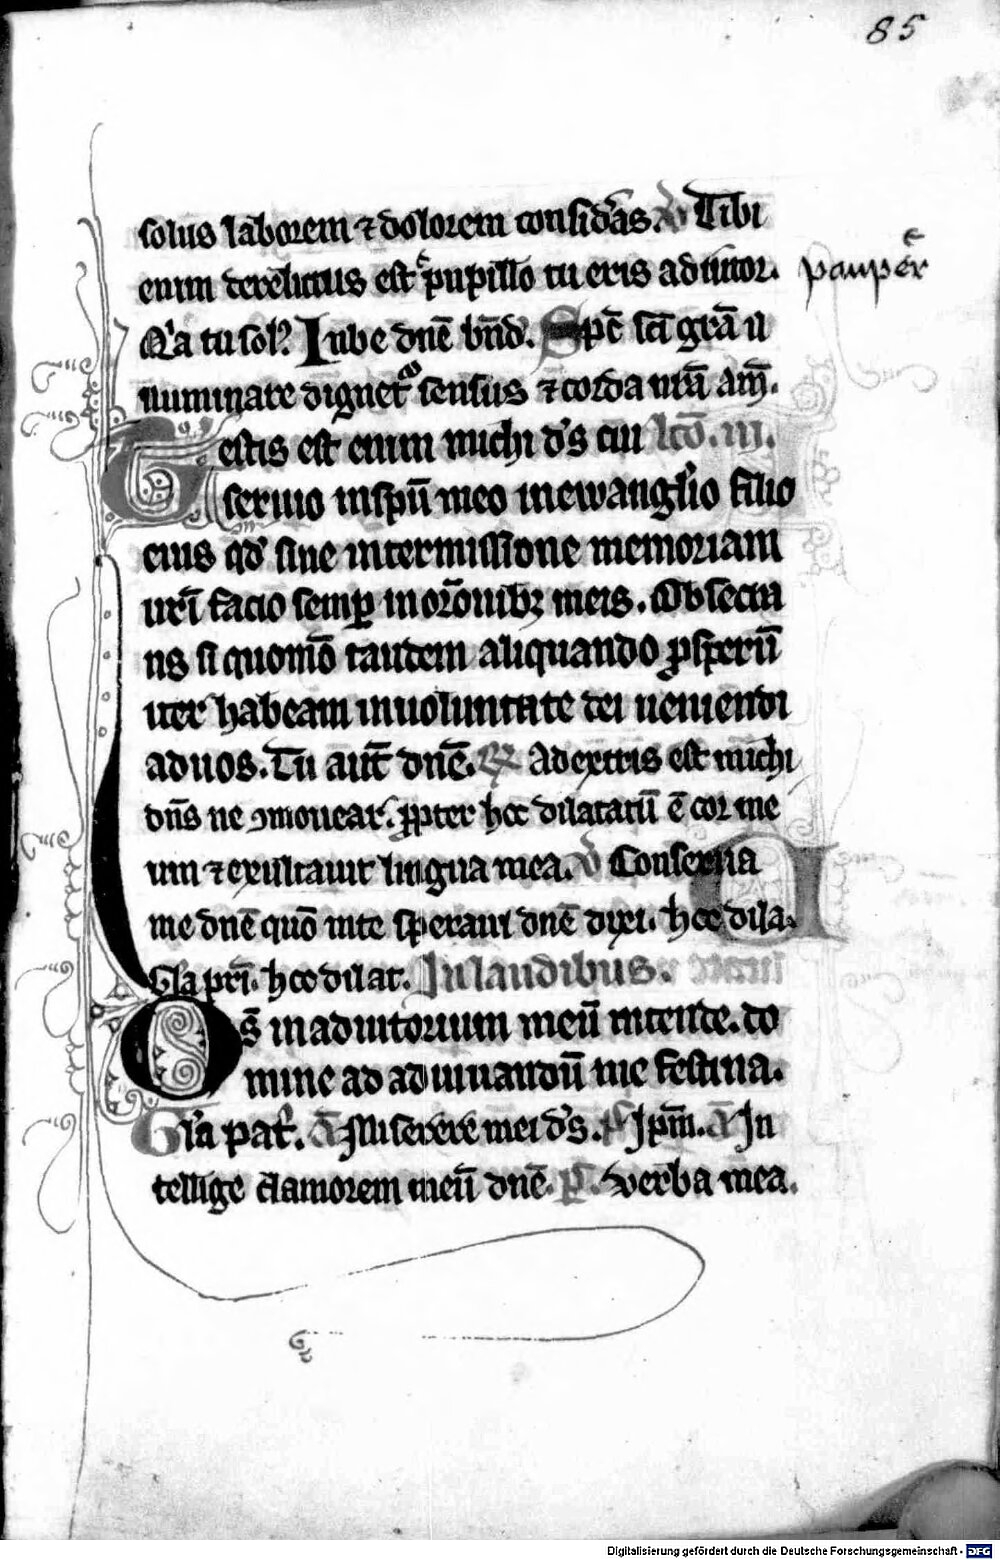 85
solus laborem ⁊ dolorem consid̾as. V Tibi
enim derelictus est pupillo tu eris adiutor.
pauper̄
Q'a tu sol9. Iube dn̄e bn̄d. Sp̄c sc̄i gr̄a il
luminare dignet᷑ sensus ⁊ corda nr̄a am̄.
Testis est enim michi d's cui lc̄o. iii.
seruio in sp̄u meo in ewangl'io filii
eius qd̓ sine intermissione memoriam
ur̄i facio semꝑ in or̄onibꝫ meis. Obsecra
ns si quomō tandem aliquando ꝓsperū
iter habeam in uoluntate dei ueniendi
ad uos. Tu aut̄ dn̄e. R Adextris est michi
dn̄s ne ꝯmouear. ꝓpter hoc dilatatū ē cor me
um ⁊ exultauit lingua mea. V Conserua
me dn̄e quō in te speraui dn̄e dixi. hoc dila.
Gl'a pr̄i. hoc dilat. In laudibus.
Ds̄ in adiutorium meū intende. do
mine ad adiuuandū me festina.
Gl'a pat̓. a Miserere mei d's. ps Ip̄m. a In
tellige clamorem meū dn̄e. p̄ Verba mea.
Digitalisierung gefördert durch die Deutsche Forschungsgemeinschaft - DFG